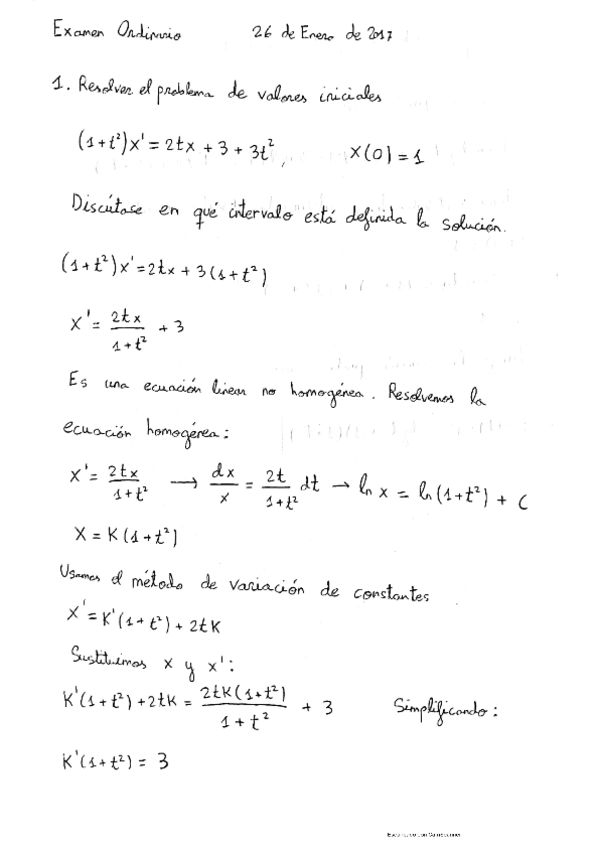 Examen Ordinario 26 de Enero de 2017
1. Resolver el problema de valores iniciales
(1+t²)x' = 2tx + 3 + 3t², x(0) = 1
Discútase en qué intervalo está definida la solución.
(1+t²)x' = 2tx + 3(1+t²)
x' = 2tx / 1+t² + 3
Es una ecuación linear no homogénea. Resolvemos la
ecuación homogénea:
x' = 2tx / 1+t² → dx / x = 2t / 1+t² dt → ln x = ln(1+t²) + C
X = K(1+t²)
Usamos el método de variación de constantes
x' = K'(1+t²) + 2tK
Sustituimos x y x':
K'(1+t²) + 2tK = 2tK(1+t²) / 1+t² + 3 Simplificando:
K'(1+t²) = 3
Escaneado con CamScanner